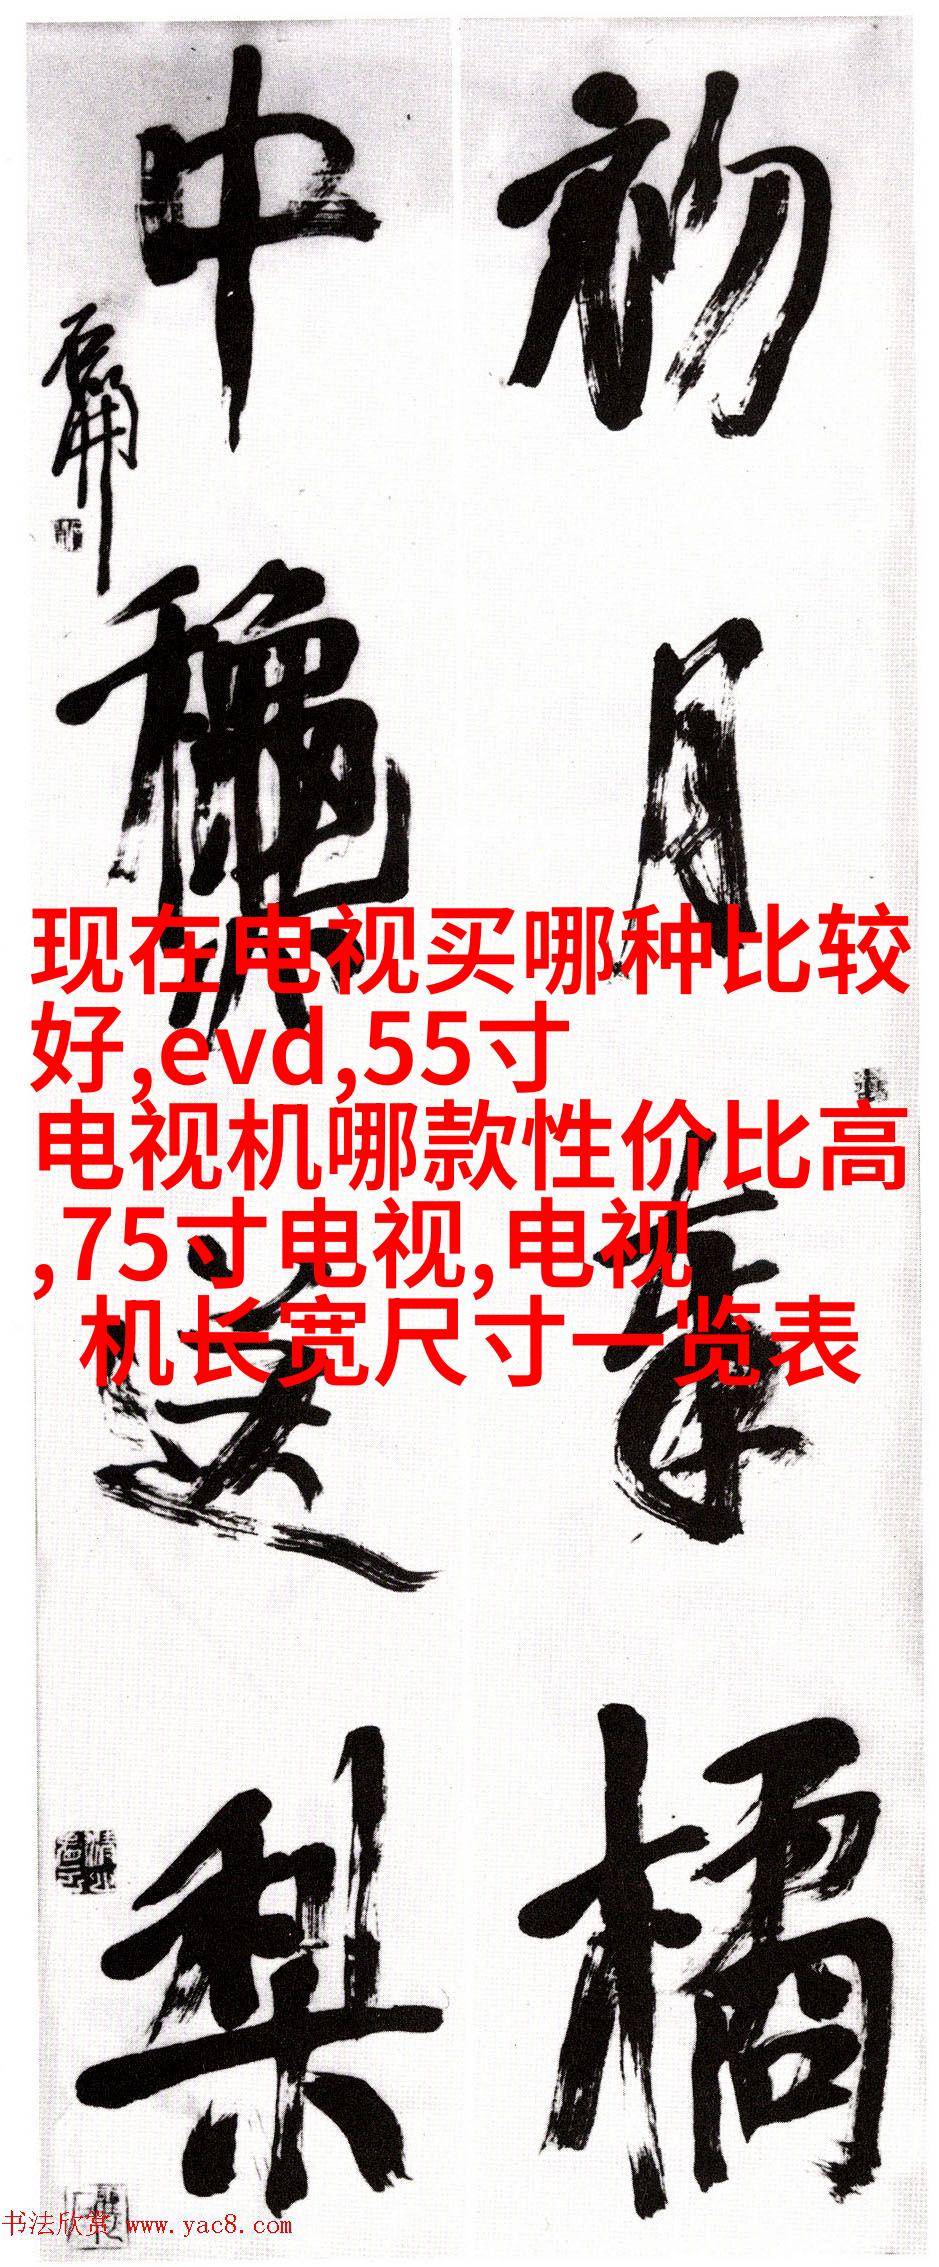 初月奉橘
中穐送梨
现在电视买哪种比较
好,evd,55寸
电视机哪款性价比高
,75寸电视,电视
机长宽尺寸一览表
书法欣赏 www.yac8.com